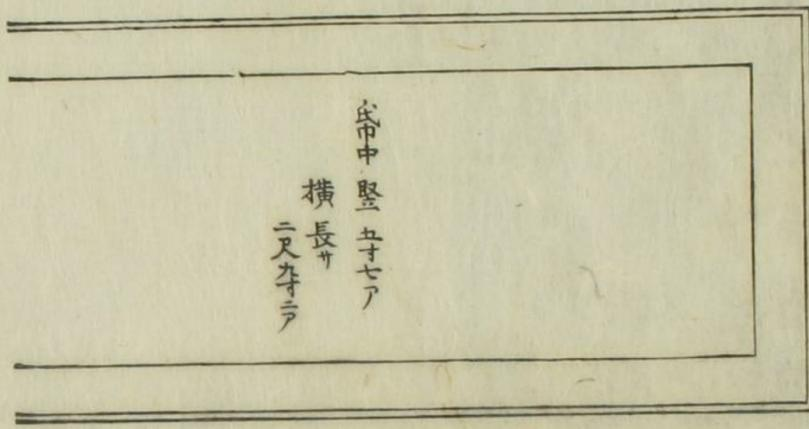 帋中 竪 五寸七ア
横 長サ
二尺九寸二ア